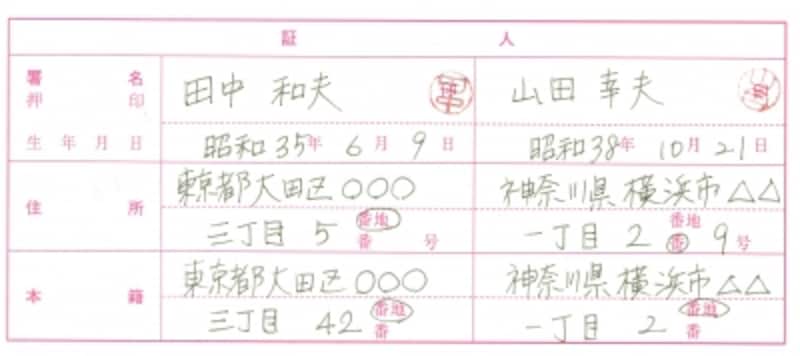 証人
署名 田中 和夫 山田 幸夫
押印
生年月日 昭和35年 6月 9日 昭和38年 10月21日
東京都大田区〇〇〇 神奈川県横浜市△△
住所 番地 番地
三丁目 5 番 号 一丁目 2 番 9号
東京都大田区〇〇〇 神奈川県横浜市△△
本籍 番地 番地
三丁目 42 番 一丁目 2 番